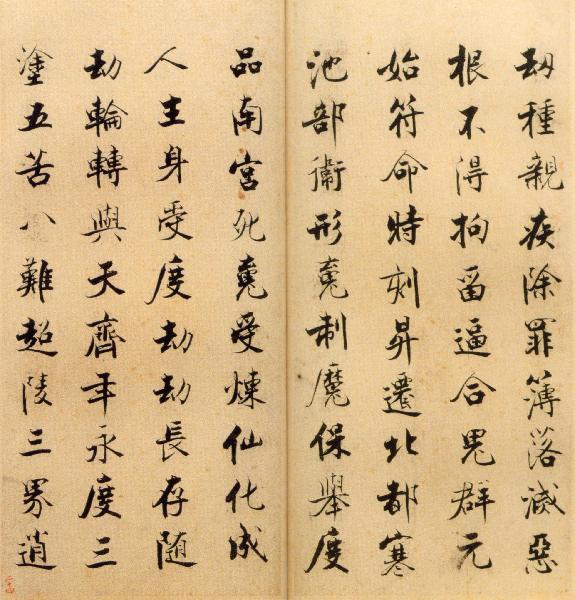 劫種親疾除罪簿落滅惡
根不得拘留逼合鬼群元
始符命時刻昇遷北都寒
池部衛形魂制魔保舉度
品南宮死魂受煉仙化成
人生身受度劫劫長存隨
劫輪轉與天齊年永度三
塗五苦八難超陵三界逍